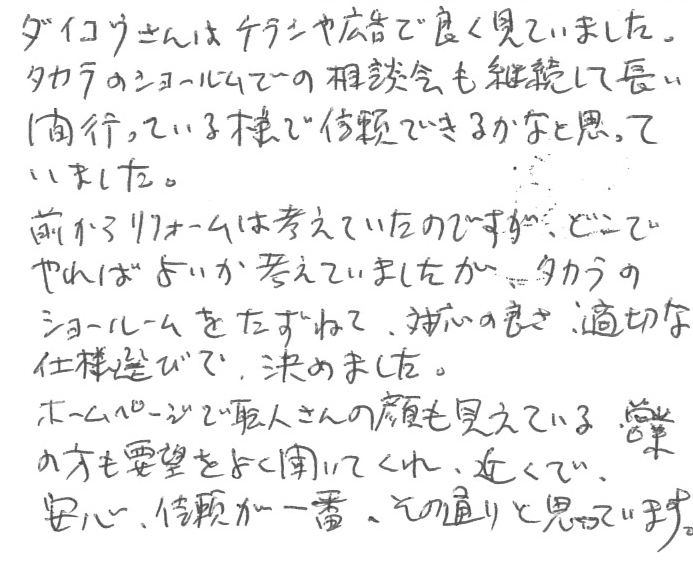 ダイコウさんはチラシや広告で良く見ていました。
タカラのショールムでの相談会も継続して長い
間行っている様で信頼できるかなと思って
いました。
前からリフォームは考えていたのですが、どこで
やればよいか考えていましたが、タカラの
ショールームをたずねて、対応の良さ、適切な
仕様選びで、決めました。
ホームページで職人さんの顔も見えている、営業
の方も要望をよく聞いてくれ、近くで、
安心、信頼が一番、その通りと思っています。